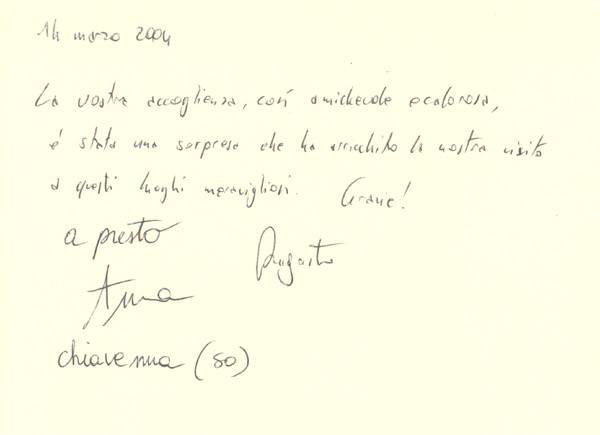 14 marzo 2004
La vostra accoglienza, così amichevole e calorosa,
è stata una sorpresa che ha arricchito la nostra visita
a questi luoghi meravigliosi. Grazie!
a presto
Augusto
Anna
chiavenna (so)